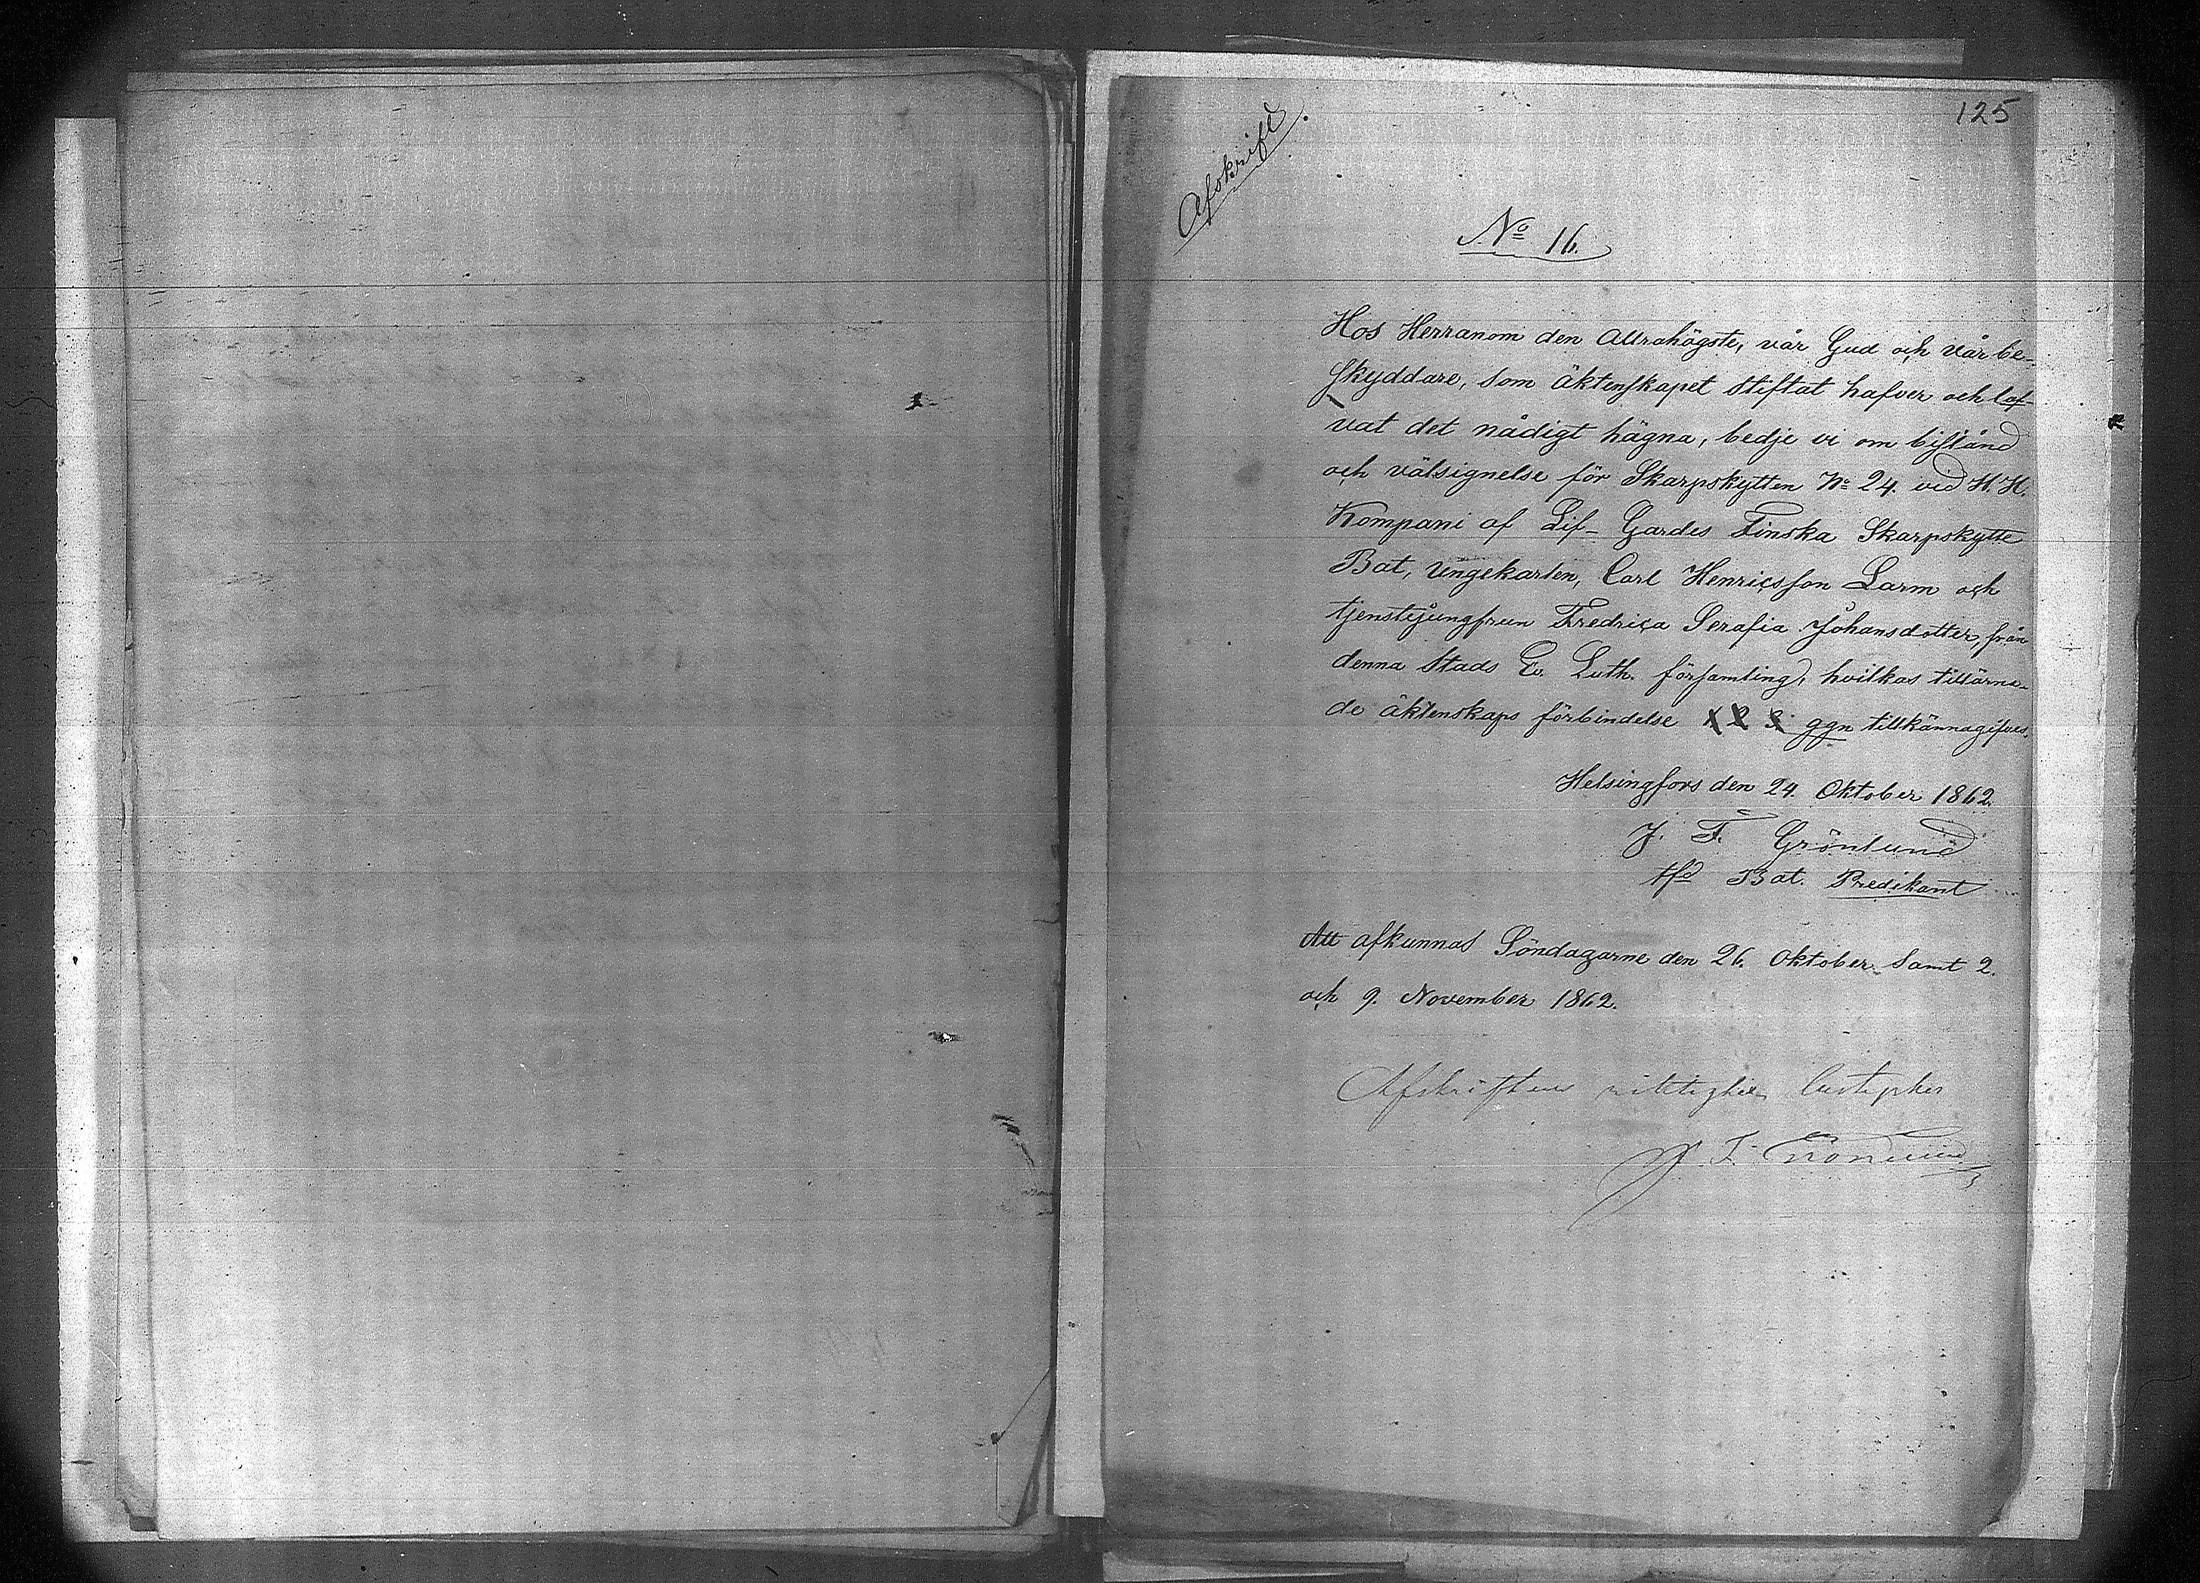 125
Afskrift.
No 16.
Hos Herranom den Allrahögste, vår Gud och vår be-
skyddare, som äktenskapet stiftat hafver och lof-
vat det nådigt hägna, bedje vi om bistånd
och välsignelse för Skarpskytten No 24. vid H. H.
Kompani af Lif-Gardes Finska Skarpskytte
Bat, ungekarlen, Carl Henricsson Larm och
tjenstejungfrun Fredrica Serafia Johansdotter, från
denna Stads Ev. Luth. församling, hvilkas tillärna-
de äktenskaps förbindelse X 2 3 ggn tillkännagifves.
Helsingfors den 24. Oktober 1862.
J. F. Grönlund
tfd Bat. Predikant
Att afkunnas Söndagarne den 26. Oktober samt 2.
och 9. November 1862.
Afskriftens riktighet
J. F. Grönlund